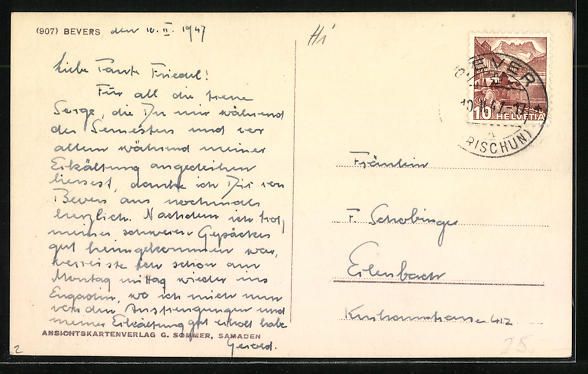 (907) BEVERS den 10. II. 1947
Liebe Tante Friedel!
Für all die treue
Sorge, die Du mir während
des Semesters und vor
allem während meiner
Erkältung angedeihen
liessest, danke ich Dir von
Bevers aus nochmals
herzlich. Nachdem ich trotz
meines schweren Gepäckes
gut heimgekommen war,
verreiste ich schon am
Montag mittag wieder ins
Engadin, wo ich mich nun
von den Anstrengungen und
meiner Erkältung gut erholt habe
Gerold.
ANSICHTSKARTENVERLAG G. SOMMER, SAMADEN
2
Hi
BEVER
10.II.47-17
(BISCHUN)
10 HELVETIA
Fräulein
F. Schobinger
Erlenbach
25.